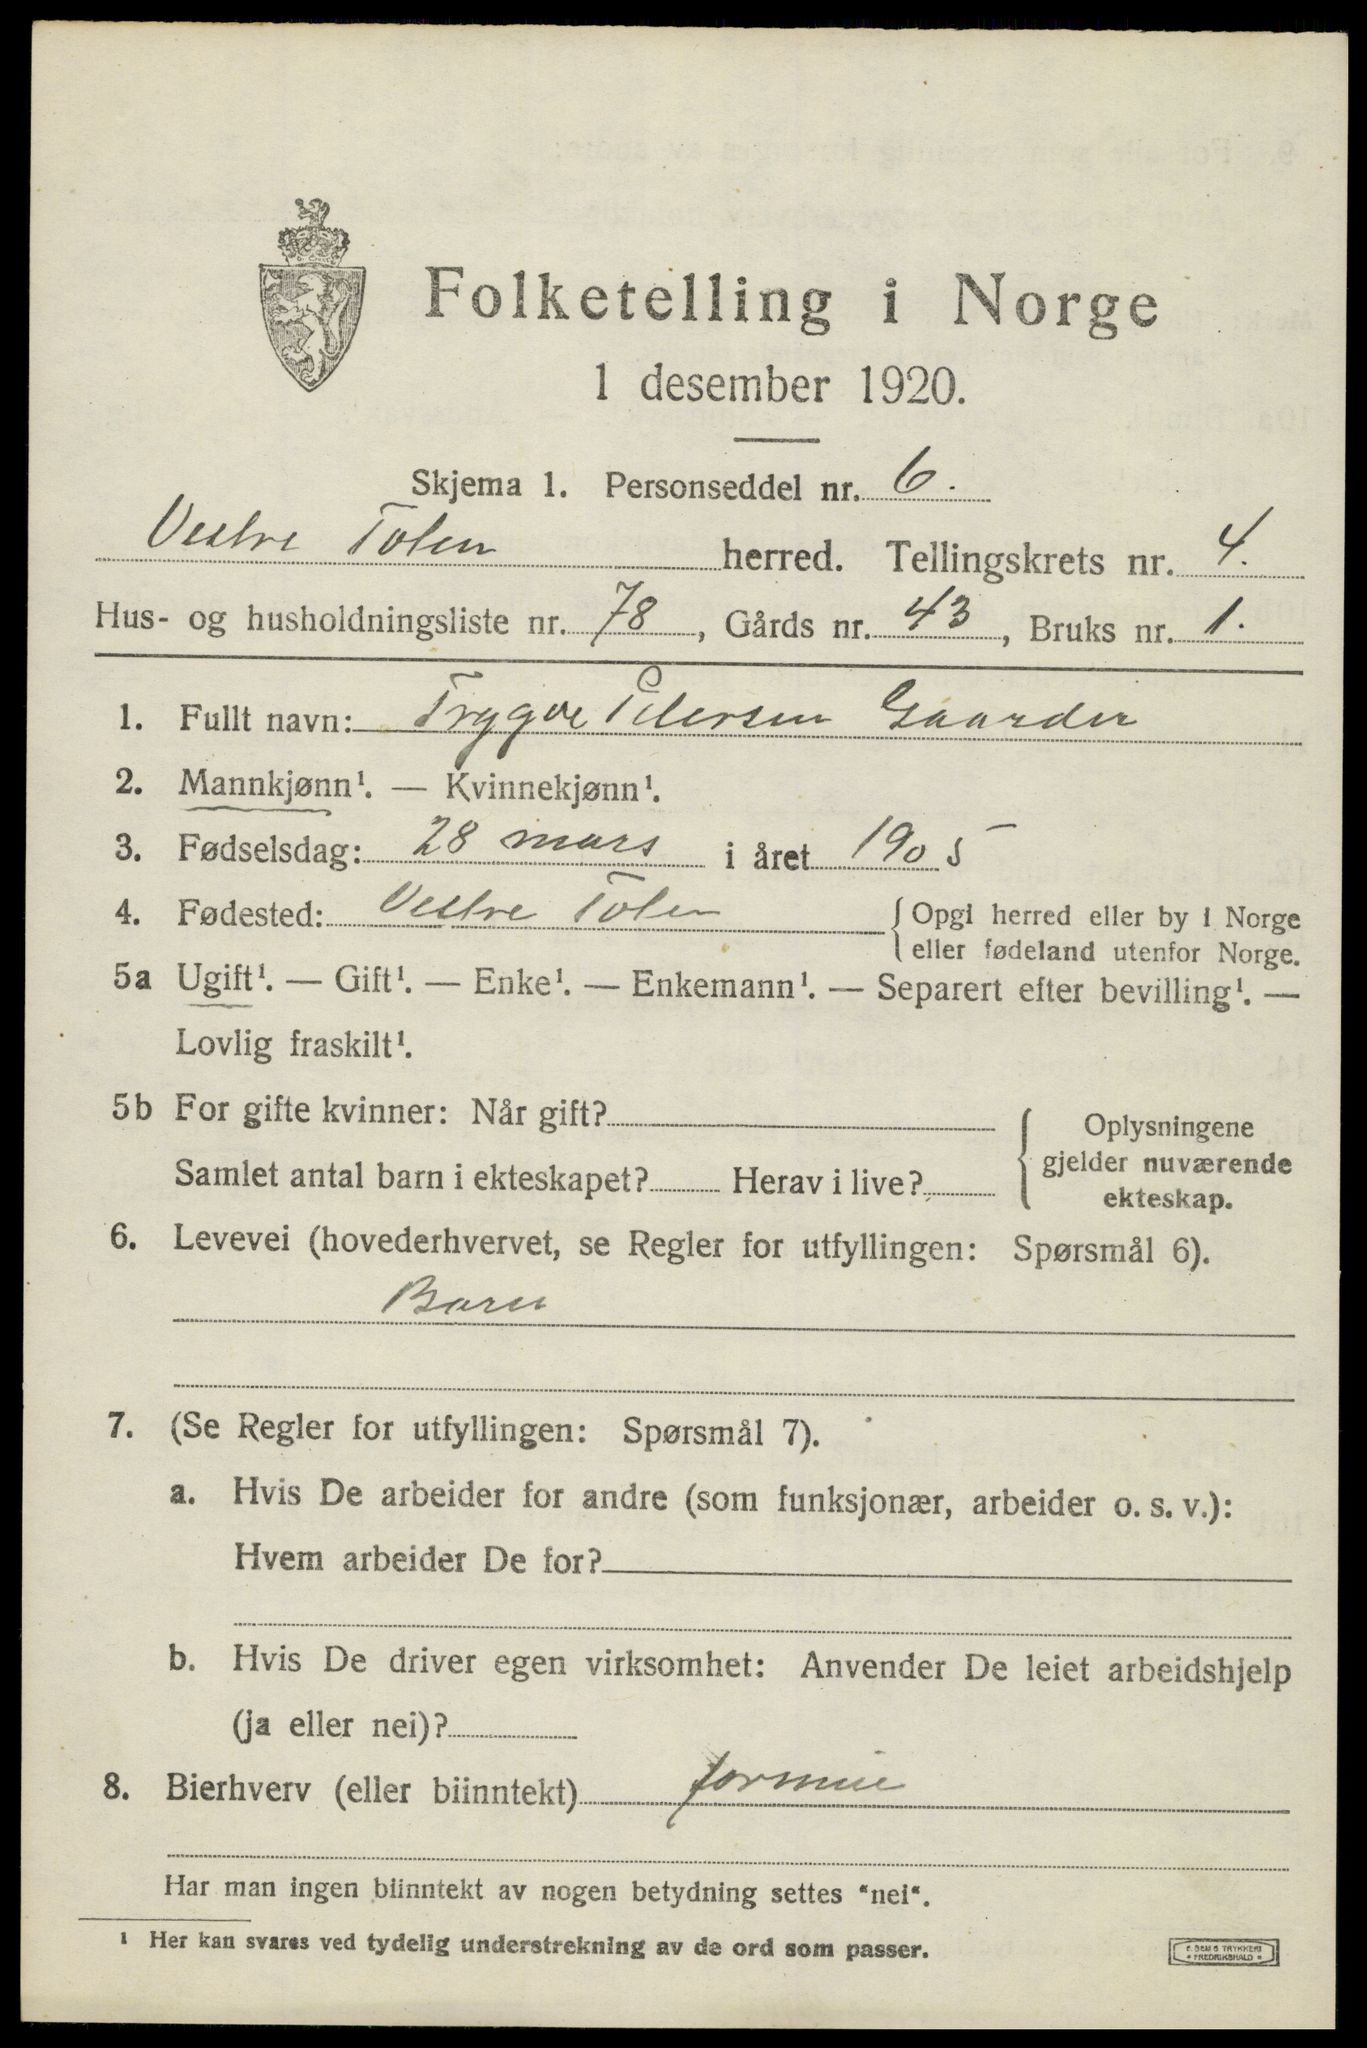 Folketelling i Norge
1 desember 1920.
Skjema 1. Personseddel nr. 6.
Vestre Toten herred. Tellingskrets nr. 4.
Hus- og husholdningsliste nr. 78, Gårds nr. 43, Bruks nr. 1.
1. Fullt navn: Trygve Petersen Gaarder
2. Mannkjønn¹. — Kvinnekjønn¹.
3. Fødselsdag: 28 mars i året 1905
4. Fødested: Vestre Toten { Opgi herred eller by i Norge
eller fødeland utenfor Norge.
5a Ugift¹. — Gift¹. — Enke¹. — Enkemann¹. — Separert efter bevilling¹. —
Lovlig fraskilt¹.
5b For gifte kvinner: Når gift? { Oplysningene
gjelder nuværende
ekteskap.
Samlet antal barn i ekteskapet? Herav i live?
6. Levevei (hovederhvervet, se Regler for utfyllingen: Spørsmål 6).
Barn
7. (Se Regler for utfyllingen: Spørsmål 7).
a. Hvis De arbeider for andre (som funksjonær, arbeider o. s. v.):
Hvem arbeider De for?
b. Hvis De driver egen virksomhet: Anvender De leiet arbeidshjelp
(ja eller nei)?
8. Bierhverv (eller biinntekt)
Har man ingen biinntekt av nogen betydning settes "nei".
¹ Her kan svares ved tydelig understrekning av de ord som passer.
TRYKKERI
FREDRIKSHALD